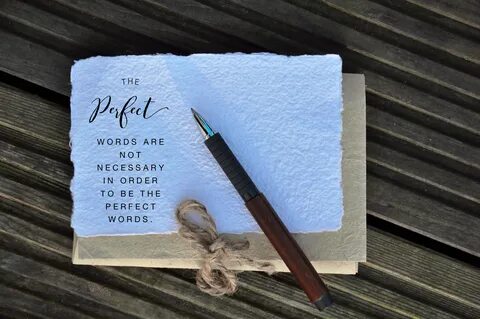 THE
Perfect
WORDS ARE
NOT
NECESSARY
IN ORDER
TO BE THE
PERFECT
WORDS.